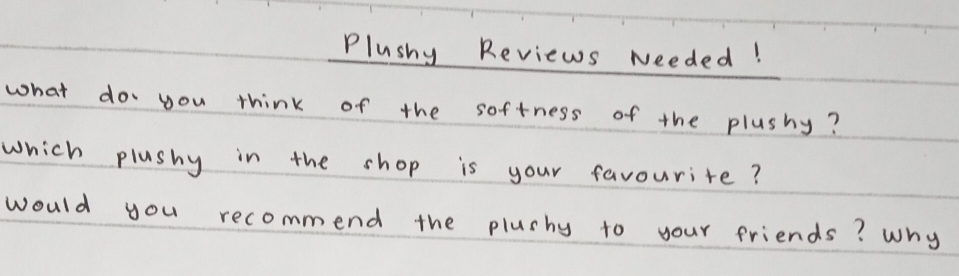 Plushy Reviews Needed!
what do you think of the softness of the plushy?
which plushy in the shop is your favourite?
would you recommend the plushy to your friends? why